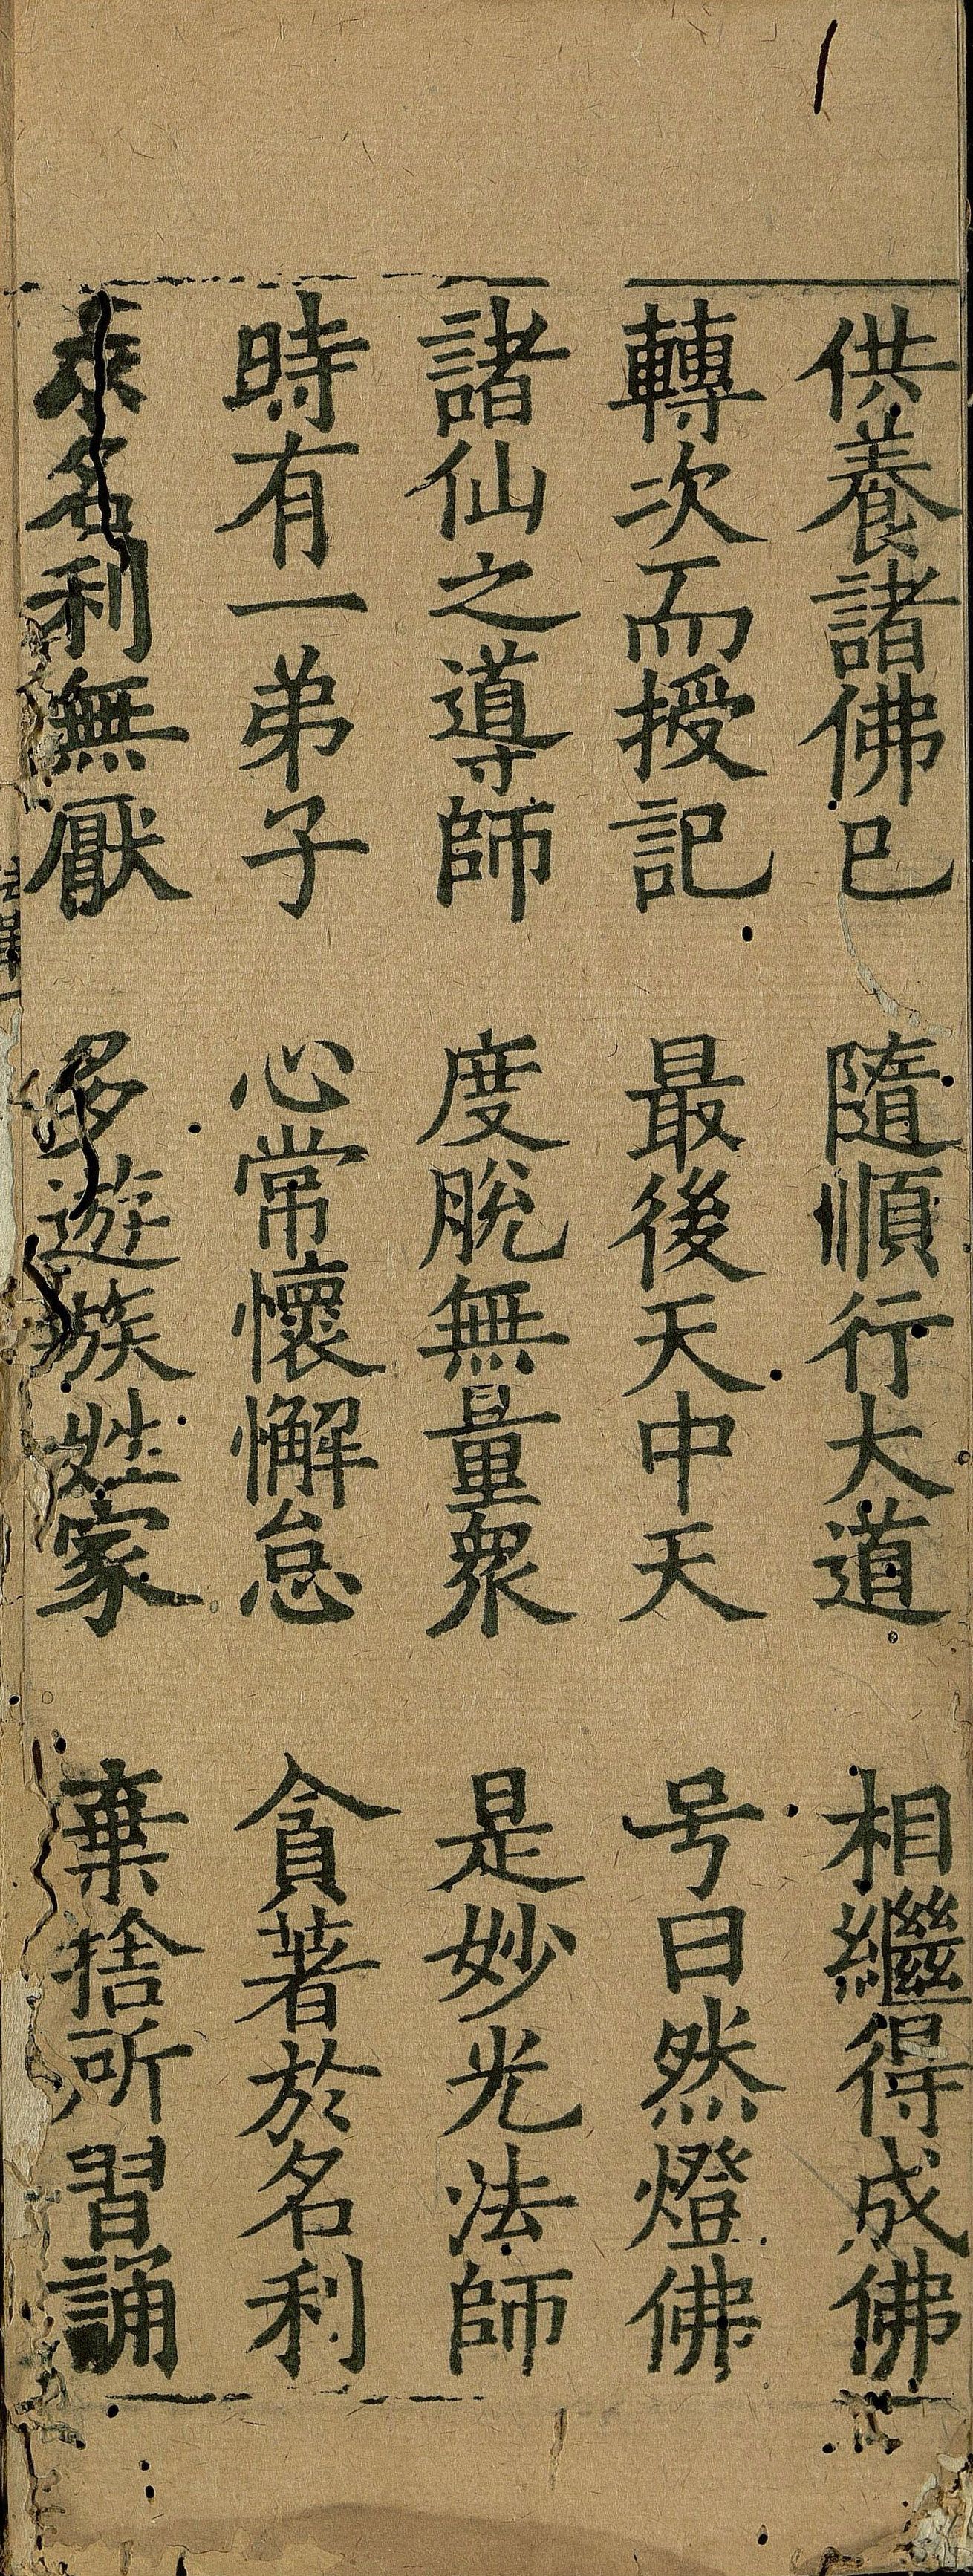 供養諸佛已 隨順行大道 相繼得成佛
轉次而授記 最後天中天 号曰然燈佛
諸仙之導師 度脫無量衆 是妙光法師
時有一弟子 心常懷懈怠 貪著於名利
求名利無厭 多遊族姓家 棄捨所習誦